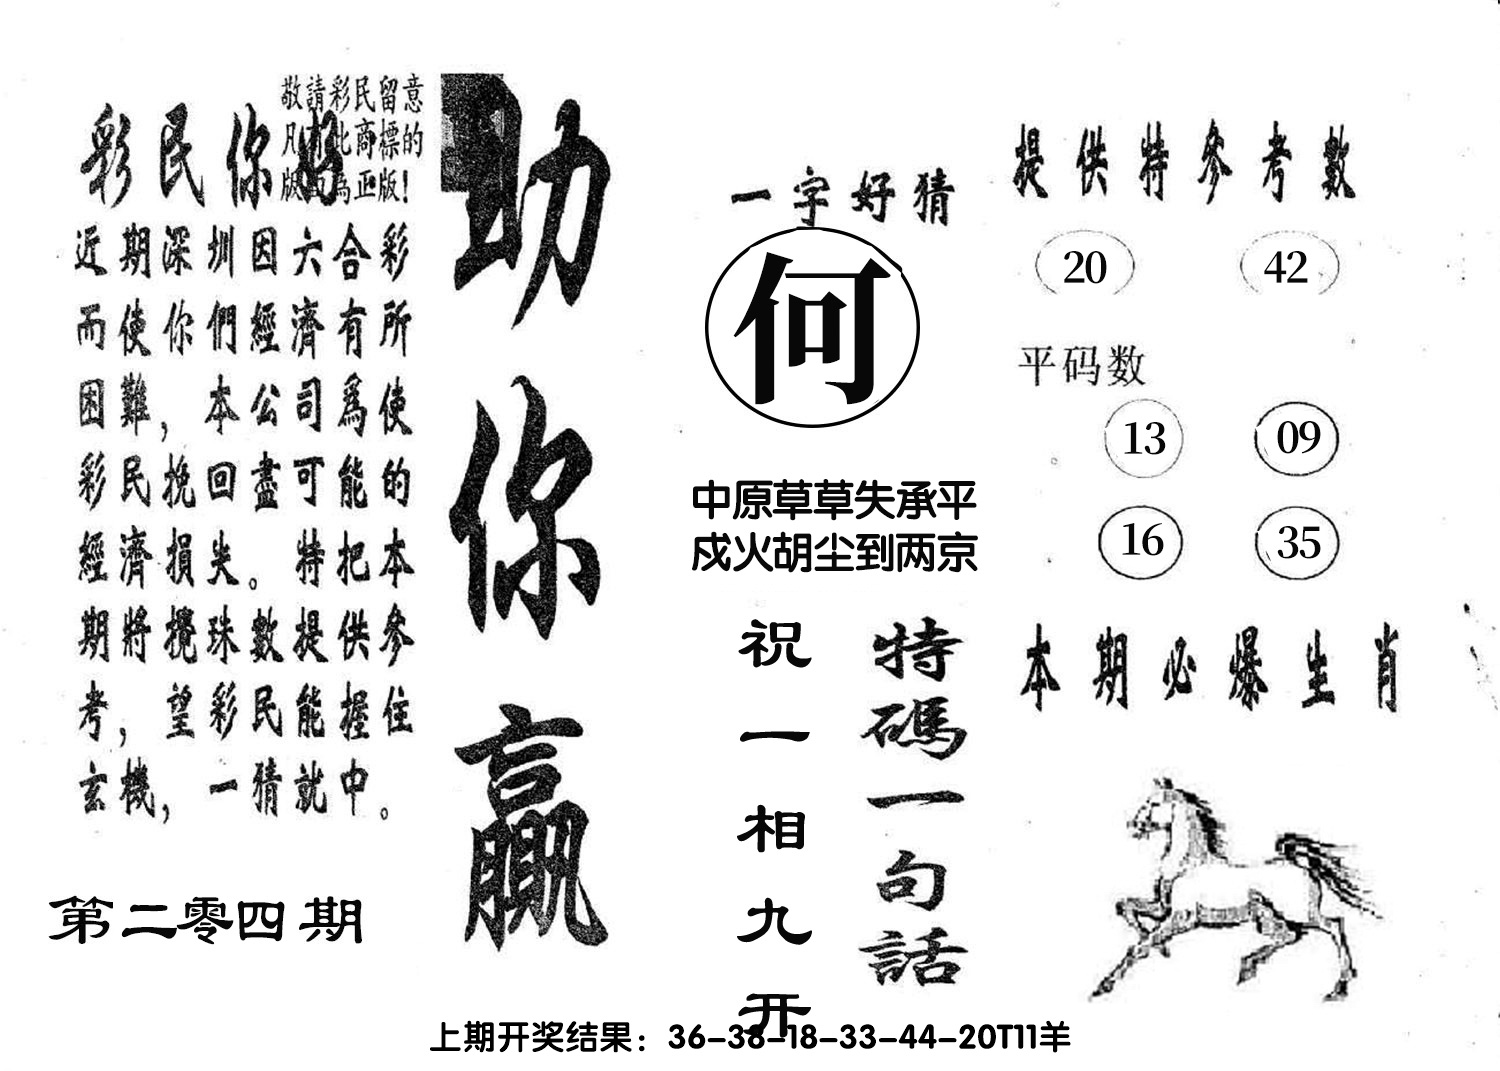 敬請彩民留意
凡有此商標的
版面為正版！
彩民你好
近期深圳因六合彩
而使你們經濟有所
困難，本公司爲使
彩民挽回盡可能的
經濟損失。特把本
期將攪珠數提供參
考，望彩民能握住
玄機，一猜就中。
第二零四期
助你贏
一字好猜
何
中原草草失承平
戍火胡尘到两京
特碼一句話
祝一相九开
提供特參考數
20 42
平码数
13 09
16 35
本期必爆生肖
上期开奖结果：36-38-18-33-44-20T11羊